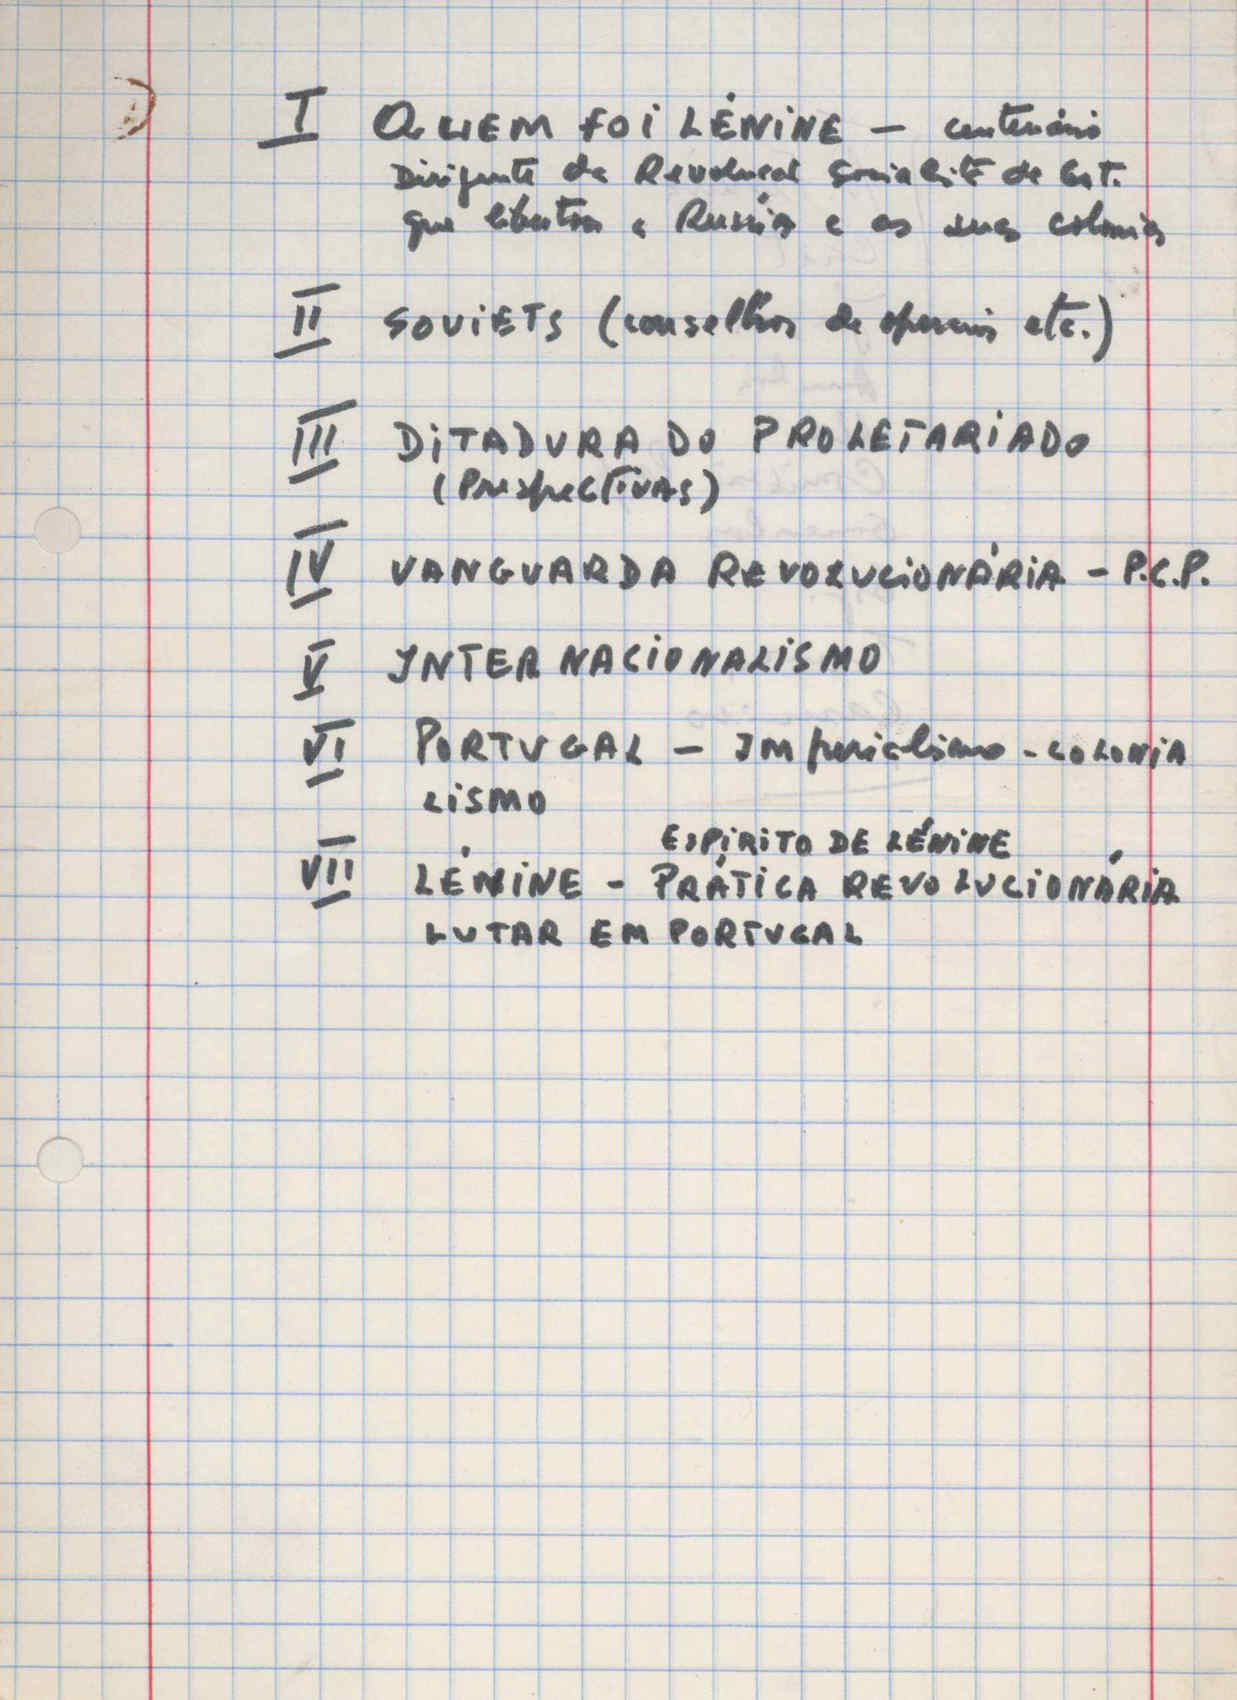 I QUEM FOI LÉNINE - centenário
Dirigente da Revolucao Socialista de Out.
que libertou a Rússia e as suas colonias
II SOVIETS (conselhos de operarios etc.)
III DITADURA DO PROLETARIADO
(PerspecTIVAS)
IV VANGUARDA REVOLUCIONÁRIA - P.C.P.
V INTERNACIONALISMO
VI PORTUGAL - IMperialismo - COLONIA
LISMO
ESPÍRITO DE LÉNINE
VII LÉNINE - PRÁTICA REVOLUCIONÁRIA
LUTAR EM PORTUGAL